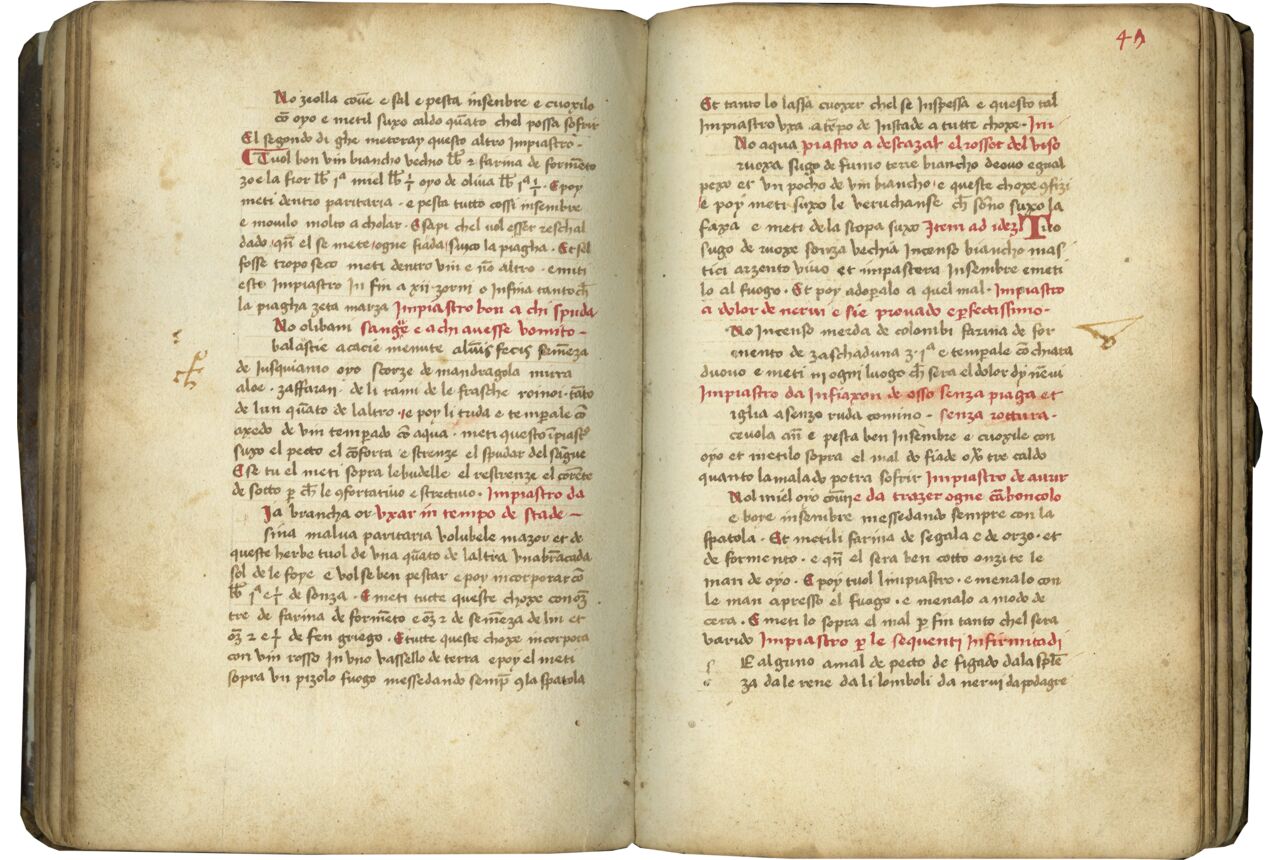 No zeolla coue e sal e pesta insenbre e cuoxilo
cō oyo e metil suxo caldo q̃uato chel possa sofrir
El segondo di ghe meteray questo altro Impiastro
Tuol bon vin biancho vechio lb̃ 2 farina de form̃eto
zoe la fior lb̃ jᵃ miel lb̃ ½ oyo de oliua lb̃ jᵃ ½ · E poy
meti dentro paritaria · e pesta tutto cossi insembre
e mouulo molto a cholar · E sapi chel vol esser reschal
dado qñ el se mete ogne fiada suxo la piagha · Et sel
fosse tropo seco meti dentro vin e nō altro · e miti
esto Impiastro In fin a xii zorni o Infina tanto ch̄
la piagha zeta marza Impiastro bon a chi spuda
No olibani sangue e a chi auesse vomito
balastie acacie menute fecis semēza
de Iusquiamo oyo scorze de mandragola mirra
aloe · zaffaran · de li rami de le frasche roinoi · tāto
de lun q̃uato de laltro · e poy li trida e temperale cō
axedo de vin temperado cō aqua · meti questo īpiastro
suxo el pecto el cōforta e strenze el spudar del sangue
E se tu el meti sopra le budelle el restrenze el corēte
de sotto p ch̄ le 9fortatiuo e strectiuo · Impiastro da
Ja brancha or vxar in tempo de stade
sina malua paritaria volubele mazor et de
queste herbe tuol de vna q̃uato de laltra vna brācada
sol de le foye e vol se ben pestar e poy incorporar cō
lb̃ jᵃ e ½ de sonza · E meti tutte queste choxe con oz̄
tre de farina de formēto e oz̄ 2 de semēza de lin et
oz̄ 2 e ½ de fen griego · Et tutte queste choxe incorpora
con vin rosso In vno vassello de terra e poy el meti
sopra vn pizolo fuogo messedando semp̄ 9 la spatola
Et tanto lo lassa cuoxer chel se Inspessa e questo tal
Impiastro vxa a tēpo de Instade a tutte choxe · Im
No aqua piastro a descazar el rossor del viso
ruoxa sugo de fumo terre biancho de ouo egual
pexo et vn pocho de vin biancho e queste choxe 9fizi
e poy meti suxo le veruchanse ch̄ sōno suxo la
faxa e meti de la stopa suxo Item ad idez Tuo
sugo de ruoxe sonza vechia Incenso biancho mas
tici arzento viuo et impastera Insembre e meti
lo al fuogo · Et poy adoperalo a quel mal · Impiastro
a dolor de nerui e sie prouado e perfectissimo
No Incenso merda de colombi farina de for
mento de zaschaduna ʒ · jᵃ e tempale cō chiara
duouo e meti in ogni luogo ch̄ sera el dolor dy neui
Impiastro da Infiaxon de osso senza piaga et
iglia asenzo ruda comino · senza rottura
ceuola añ e pesta ben Insembre e cuoxile con
oyo et metilo sopra el mal do fiade o tre caldo
quanto lamalado potra sofrir Impiastro de aurir
Nol miel oro comūe da trazer ogne cārboncolo
e bore insembre messedando sempre con la
spatola · Et metili farina de segala e de orzo · et
de formento · e qñ el sera ben cotto onzite le
man de oyo · E poy tuol limpiastro · e menalo con
le man apresso el fuogo · e menalo a modo de
cera · E meti lo sopra el mal p fin tanto chel sera
varido Impiastro p le sequenti Infirmitadi
E alguno amal de pecto de figado da la splē
za da le rene da li lomboli da nerui da podagre